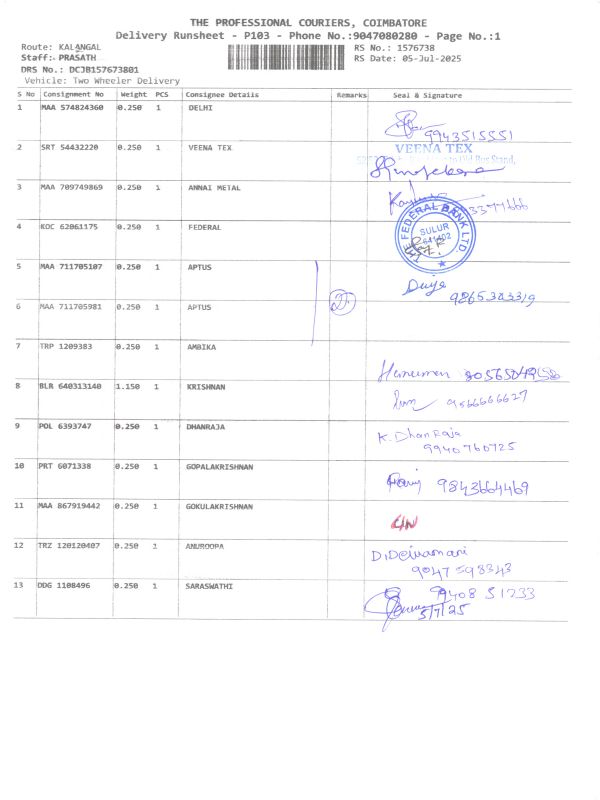 THE PROFESSIONAL COURIERS, COIMBATORE
Delivery Runsheet - P103 - Phone No.:9047080280 - Page No.:1
Route: KALANGAL
RS No.: 1576738
Staff: PRASATH
RS Date: 05-Jul-2025
DRS No.: DCJB157673801
Vehicle: Two Wheeler Delivery
S No Consignment No Weight PCS Consignee Details Remarks Seal & Signature
1 MAA 574824360 0.250 1 DELHI
9943515551
2 SRT 54432220 0.250 1 VEENA TEX VEENA TEX
3 MAA 709749869 0.250 1 ANNAI METAL
4 KOC 62061175 0.250 1 FEDERAL FEDERAL BANK LTD. SULUR 641402
5 MAA 711705107 0.250 1 APTUS
9865383319
6 MAA 711705981 0.250 1 APTUS
7 TRP 1209383 0.250 1 AMBIKA
8 BLR 640313140 1.150 1 KRISHNAN
9566666627
9 POL 6393747 0.250 1 DHANRAJA K. DhanRaja
9940760725
10 PRT 6071338 0.250 1 GOPALAKRISHNAN
9843664469
11 MAA 867919442 0.250 1 GOKULAKRISHNAN
12 TRZ 120120407 0.250 1 ANUROOPA
9047598343
13 DDG 1108496 0.250 1 SARASWATHI 99408 51233
5/7/25